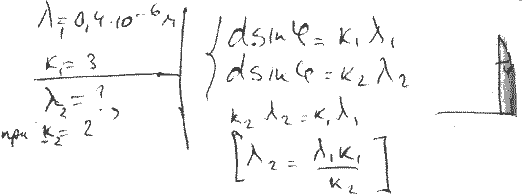 λ₁ = 0,4·10⁻⁶ м
к₁ = 3
λ₂ = ?,
при к₂ = 2
d sin φ = к₁ λ₁
d sin φ = к₂ λ₂
к₂ λ₂ = к₁ λ₁
[λ₂ = λ₁к₁/к₂]